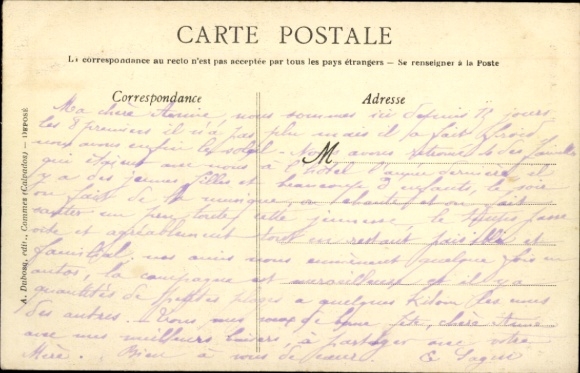 CARTE POSTALE
La correspondance au recto n'est pas acceptée par tous les pays étrangers — Se renseigner à la Poste
Correspondance
Adresse
M
A. Dubosq, édit., Commes (Calvados) — DEPOSÉ
Ma chère Annie, nous sommes ici depuis 12 jours
les 8 premiers il n'a pas plu mais il a fait froid
nous avons enfin le soleil - Nous avons retrouvé des familles
qui étaient avec nous à l'hôtel l'année dernière, il
y a des jeunes filles et beaucoup d'enfants, le soir
on fait de la musique, on chante et on fait
sauter un peu toute cette jeunesse, le temps passe
vite et agréablement tout en restant paisible et
familial, nos amis nous emmènent quelque fois en
autos, la campagne est merveilleuse et il y a
quantités de petites plages à quelques kilom. les unes
des autres. - Tous mes vœux de bonne fête, chère Annie
avec mes meilleurs baisers, à partager avec votre
Mère. Bien à vous de cœur.